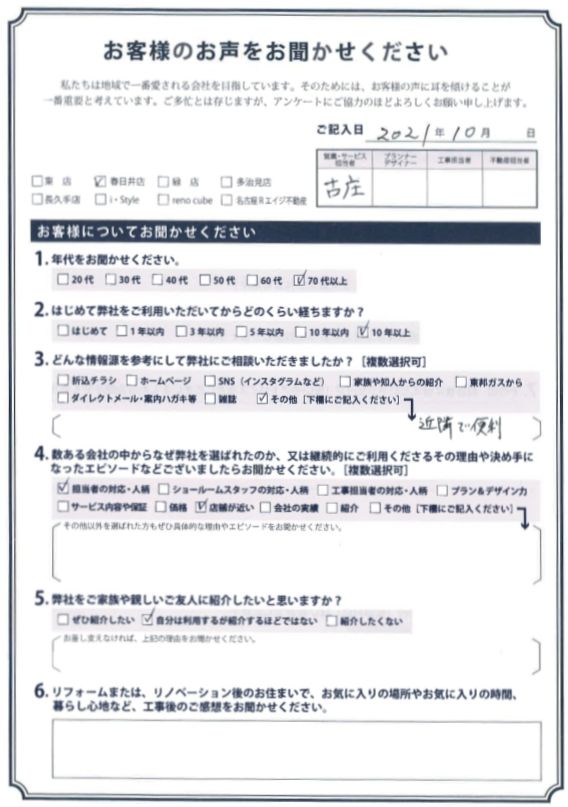 お客様のお声をお聞かせください
私たちは地域で一番愛される会社を目指しています。そのためには、お客様の声に耳を傾けることが
一番重要と考えています。ご多忙とは存じますが、アンケートにご協力のほどよろしくお願い申し上げます。
ご記入日 2021年10月 日
営業・サービス担当者 プランナーデザイナー 工事担当者 不動産担当者
古庄
□東 店 ☑春日井店 □緑 店 □多治見店
□長久手店 □i・Style □reno cube □名古屋Rエイジ不動産
お客様についてお聞かせください
1.年代をお聞かせください。
□20代 □30代 □40代 □50代 □60代 ☑70代以上
2.はじめて弊社をご利用いただいてからどのくらい経ちますか？
□はじめて □1年以内 □3年以内 □5年以内 □10年以内 ☑10年以上
3.どんな情報源を参考にして弊社にご相談いただきましたか？［複数選択可］
□折込チラシ □ホームページ □SNS（インスタグラムなど） □家族や知人からの紹介 □東邦ガスから
□ダイレクトメール・案内ハガキ等 □雑誌 ☑その他［下欄にご記入ください］
近隣で便利
4.数ある会社の中からなぜ弊社を選ばれたのか、又は継続的にご利用くださるその理由や決め手に
なったエピソードなどございましたらお聞かせください。［複数選択可］
☑担当者の対応・人柄 □ショールームスタッフの対応・人柄 □工事担当者の対応・人柄 □プラン&デザイン力
□サービス内容や保証 □価格 ☑店舗が近い □会社の実績 □紹介 □その他［下欄にご記入ください］
その他以外を選ばれた方もぜひ具体的な理由やエピソードをお聞かせください。
5.弊社をご家族や親しいご友人に紹介したいと思いますか？
□ぜひ紹介したい ☑自分は利用するが紹介するほどではない □紹介したくない
お差し支えなければ、上記の理由をお聞かせください。
6.リフォームまたは、リノベーション後のお住まいで、お気に入りの場所やお気に入りの時間、
暮らし心地など、工事後のご感想をお聞かせください。